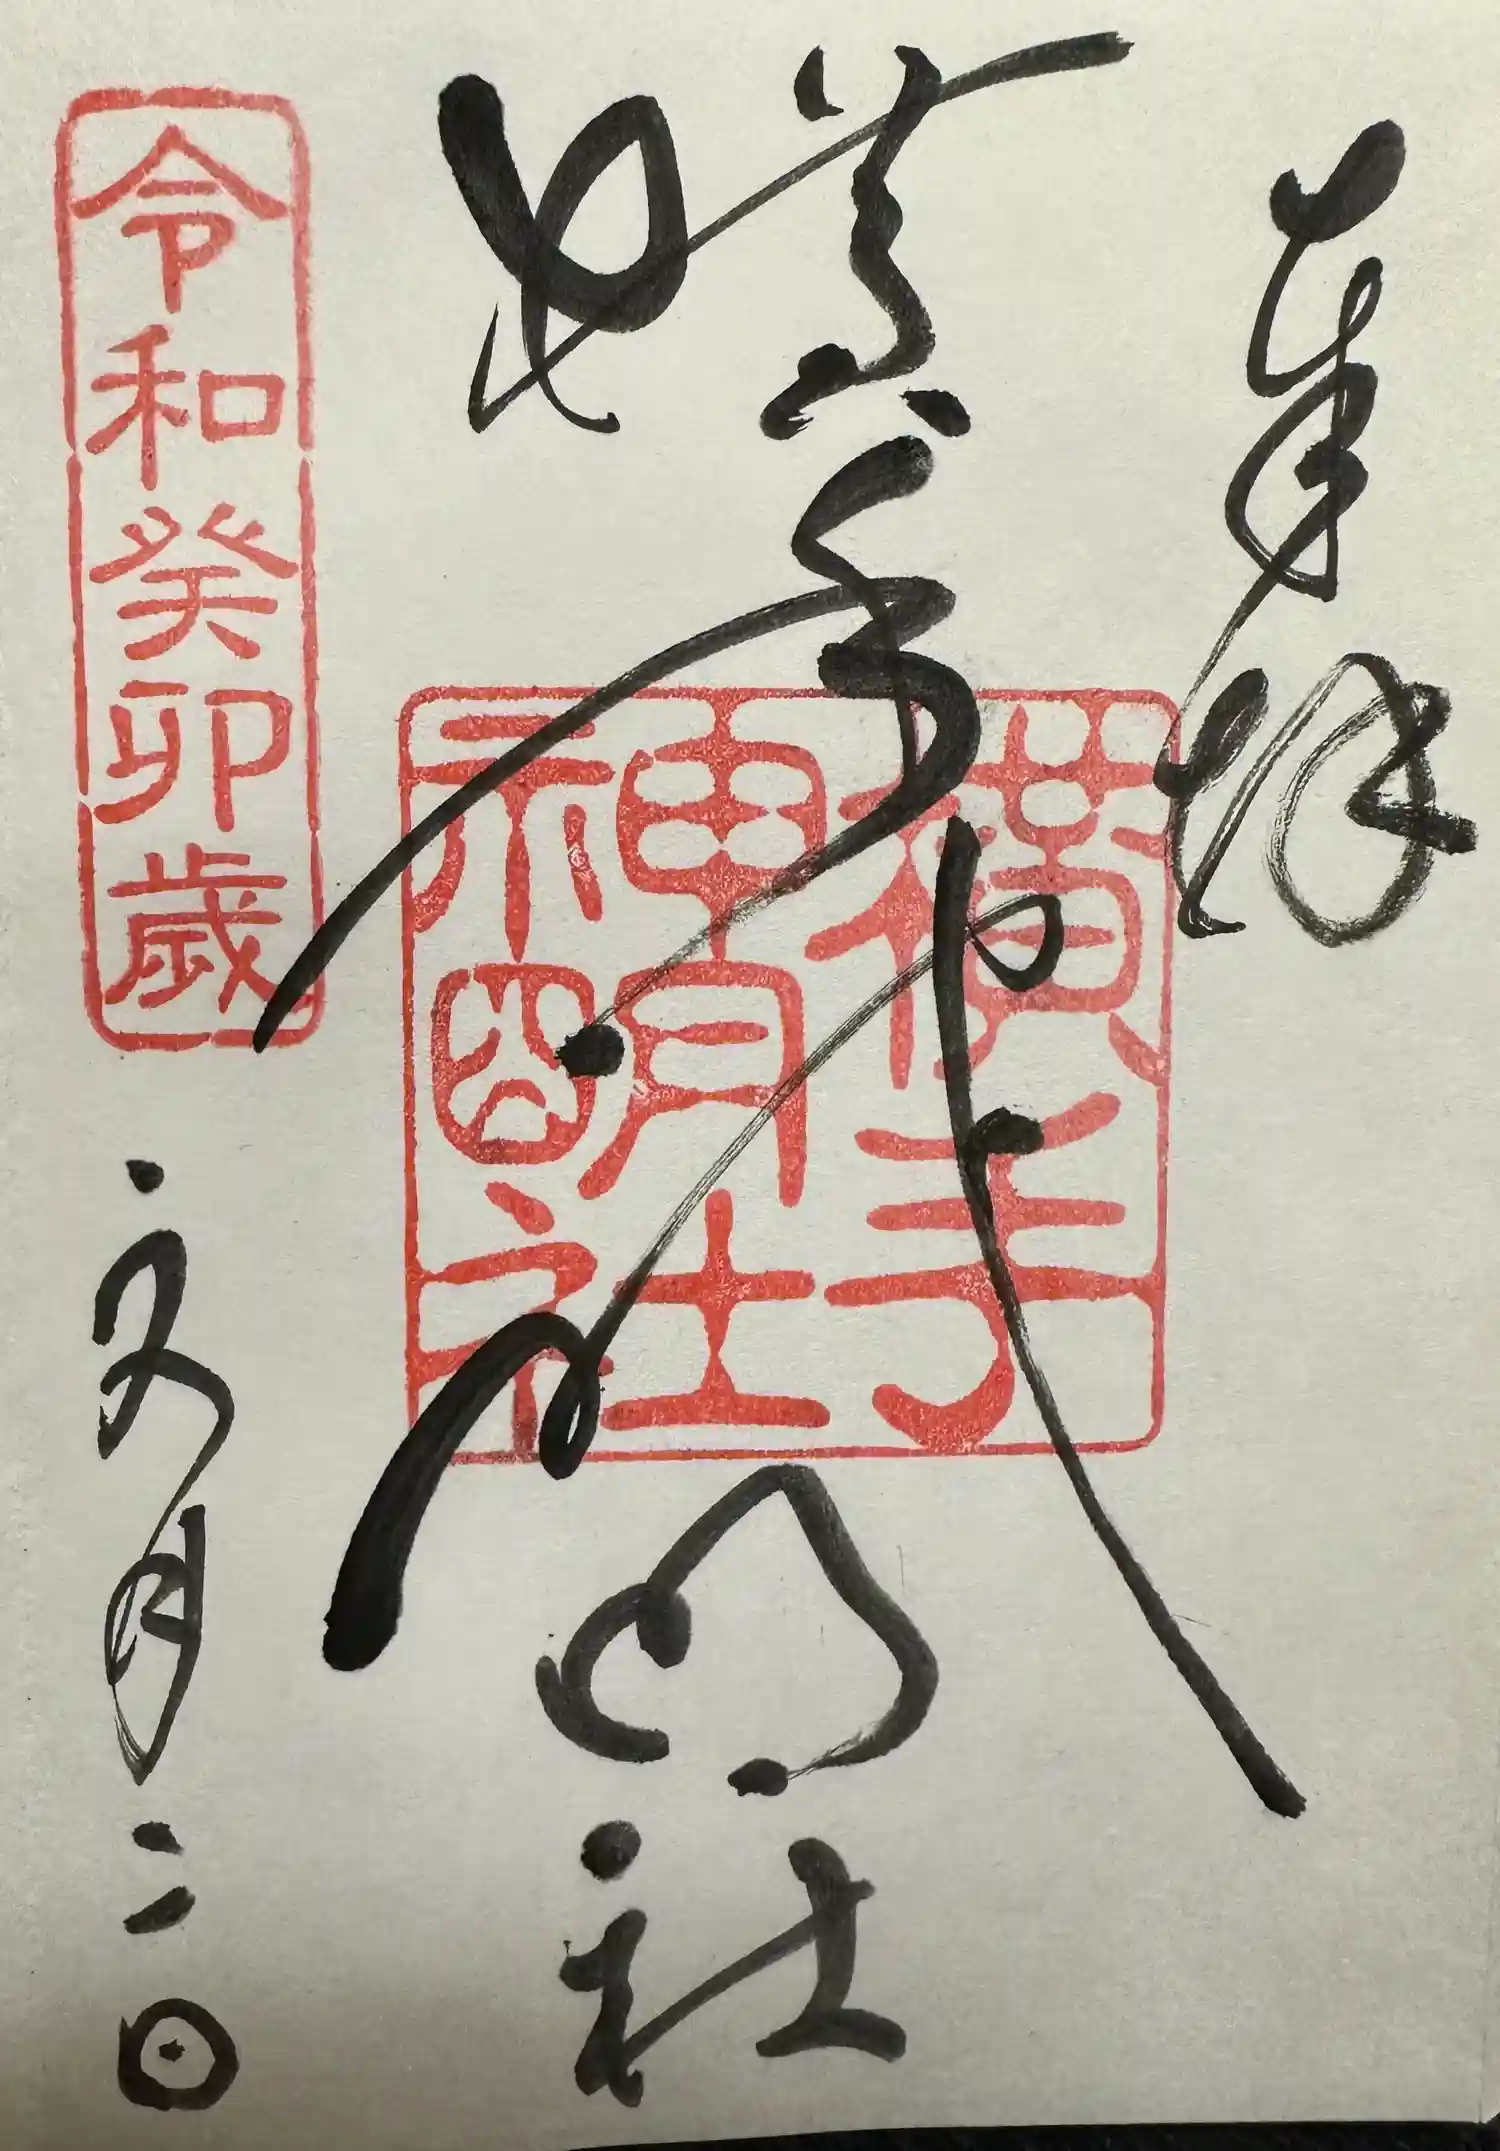 奉拝
横手神明社
横手神明社
令和癸卯歳
文月二日